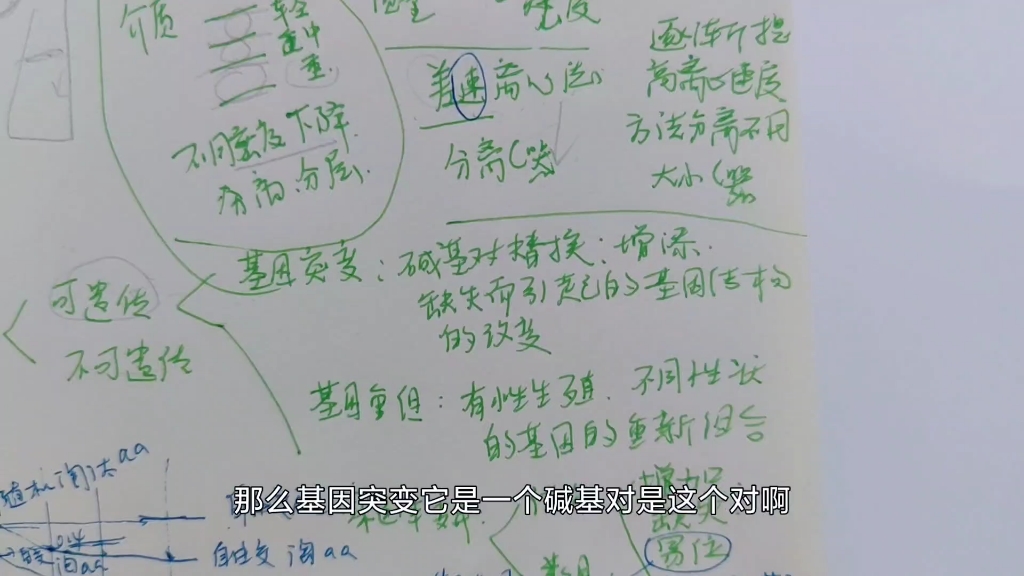 介质
轻
中
重
密度
速度
差速离心法
分离(器
逐渐提
高离心速度
方法分离不同
大小(器
不同密度下降
分层
可遗传
不可遗传
基因突变：碱基对替换；增添.
缺失而引起的基因结构
的改变
基因重组：有性生殖. 不同性状
的基因的重新组合
随机淘汰aa
自由交 淘aa
淘aa
缺失
易位
那么基因突变它是一个碱基对是这个对啊